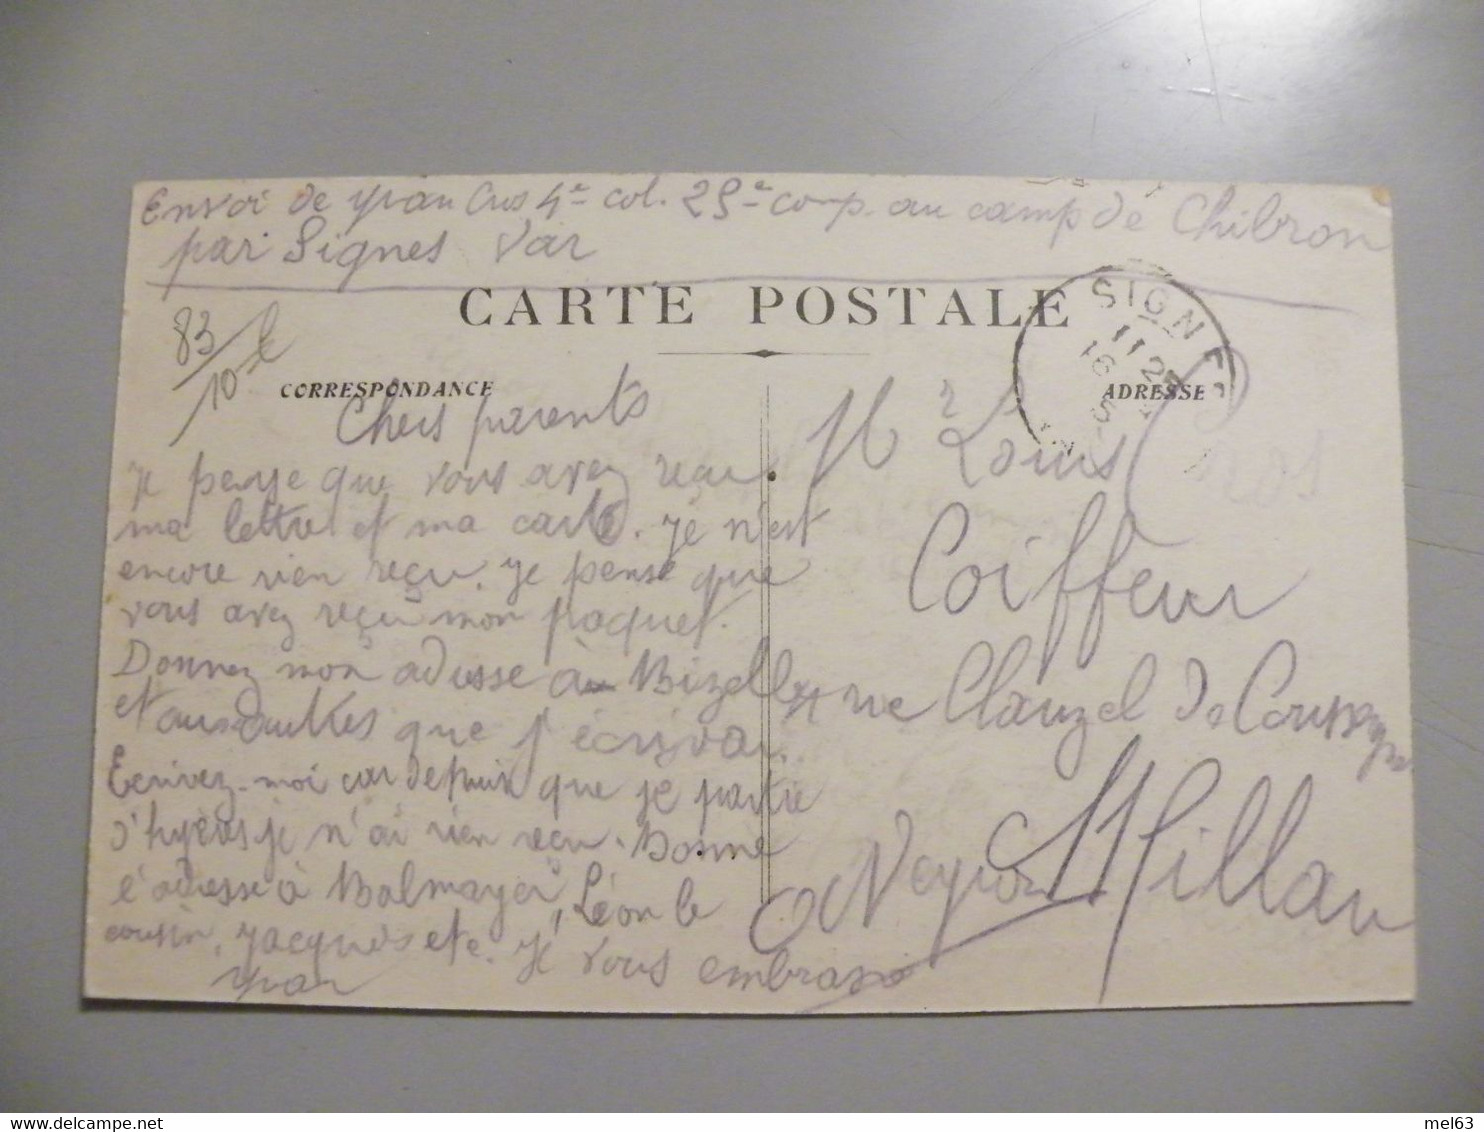 Envoi de Yvan Cros 4e col. 25e comp. au camp de Chibron
par Signes Var
CARTE POSTALE
83/10 €
CORRESPONDANCE
ADRESSE
SIGNES
11 25
16 5
Chers parents
Je pense que vous avez reçu
ma lettre et ma carte. Je n'est
encore rien reçu. Je pense que
vous avez reçu mon paquet.
Donnez mon adresse à Bizell
et aussi que j'écrivai.
Ecrivez-moi car depuis que je partie
d'hyères je n'ai rien reçu. Donne
l'adresse à Balmayer, Léon le
cousin, Jacques etc. Je vous embrasse
Yvan
Mr Louis Cros
Coiffeur
rue Clauzel de Coussergues
Millau
Aveyron
mel63